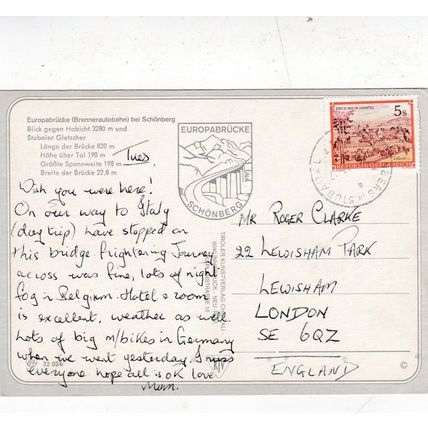 Europabrücke (Brennerautobahn) bei Schönberg
Blick gegen Habicht 3280 m und
Stubaier Gletscher
Länge der Brücke 820 m
Höhe über Tal 190 m
Größte Spannweite 198 m
Breite der Brücke 22,8 m
Tues
EUROPABRÜCKE
SCHÖNBERG
5s
REPUBLIK ÖSTERREICH
Wish you were here!
On our way to Italy
(day trip) have stopped on
this bridge. frightening Journey
across was fine, lots of night
fog in Belgium. Hotel & room
is excellent, weather as well
Lots of big m/bikes in Germany
when we went yesterday. I miss
everyone hope all is OK love
Mum.
TIROLER KUNSTVERLAG
MR ROGER CLARKE
22 LEWISHAM PARK
LEWISHAM
LONDON
SE 6QZ
ENGLAND
©